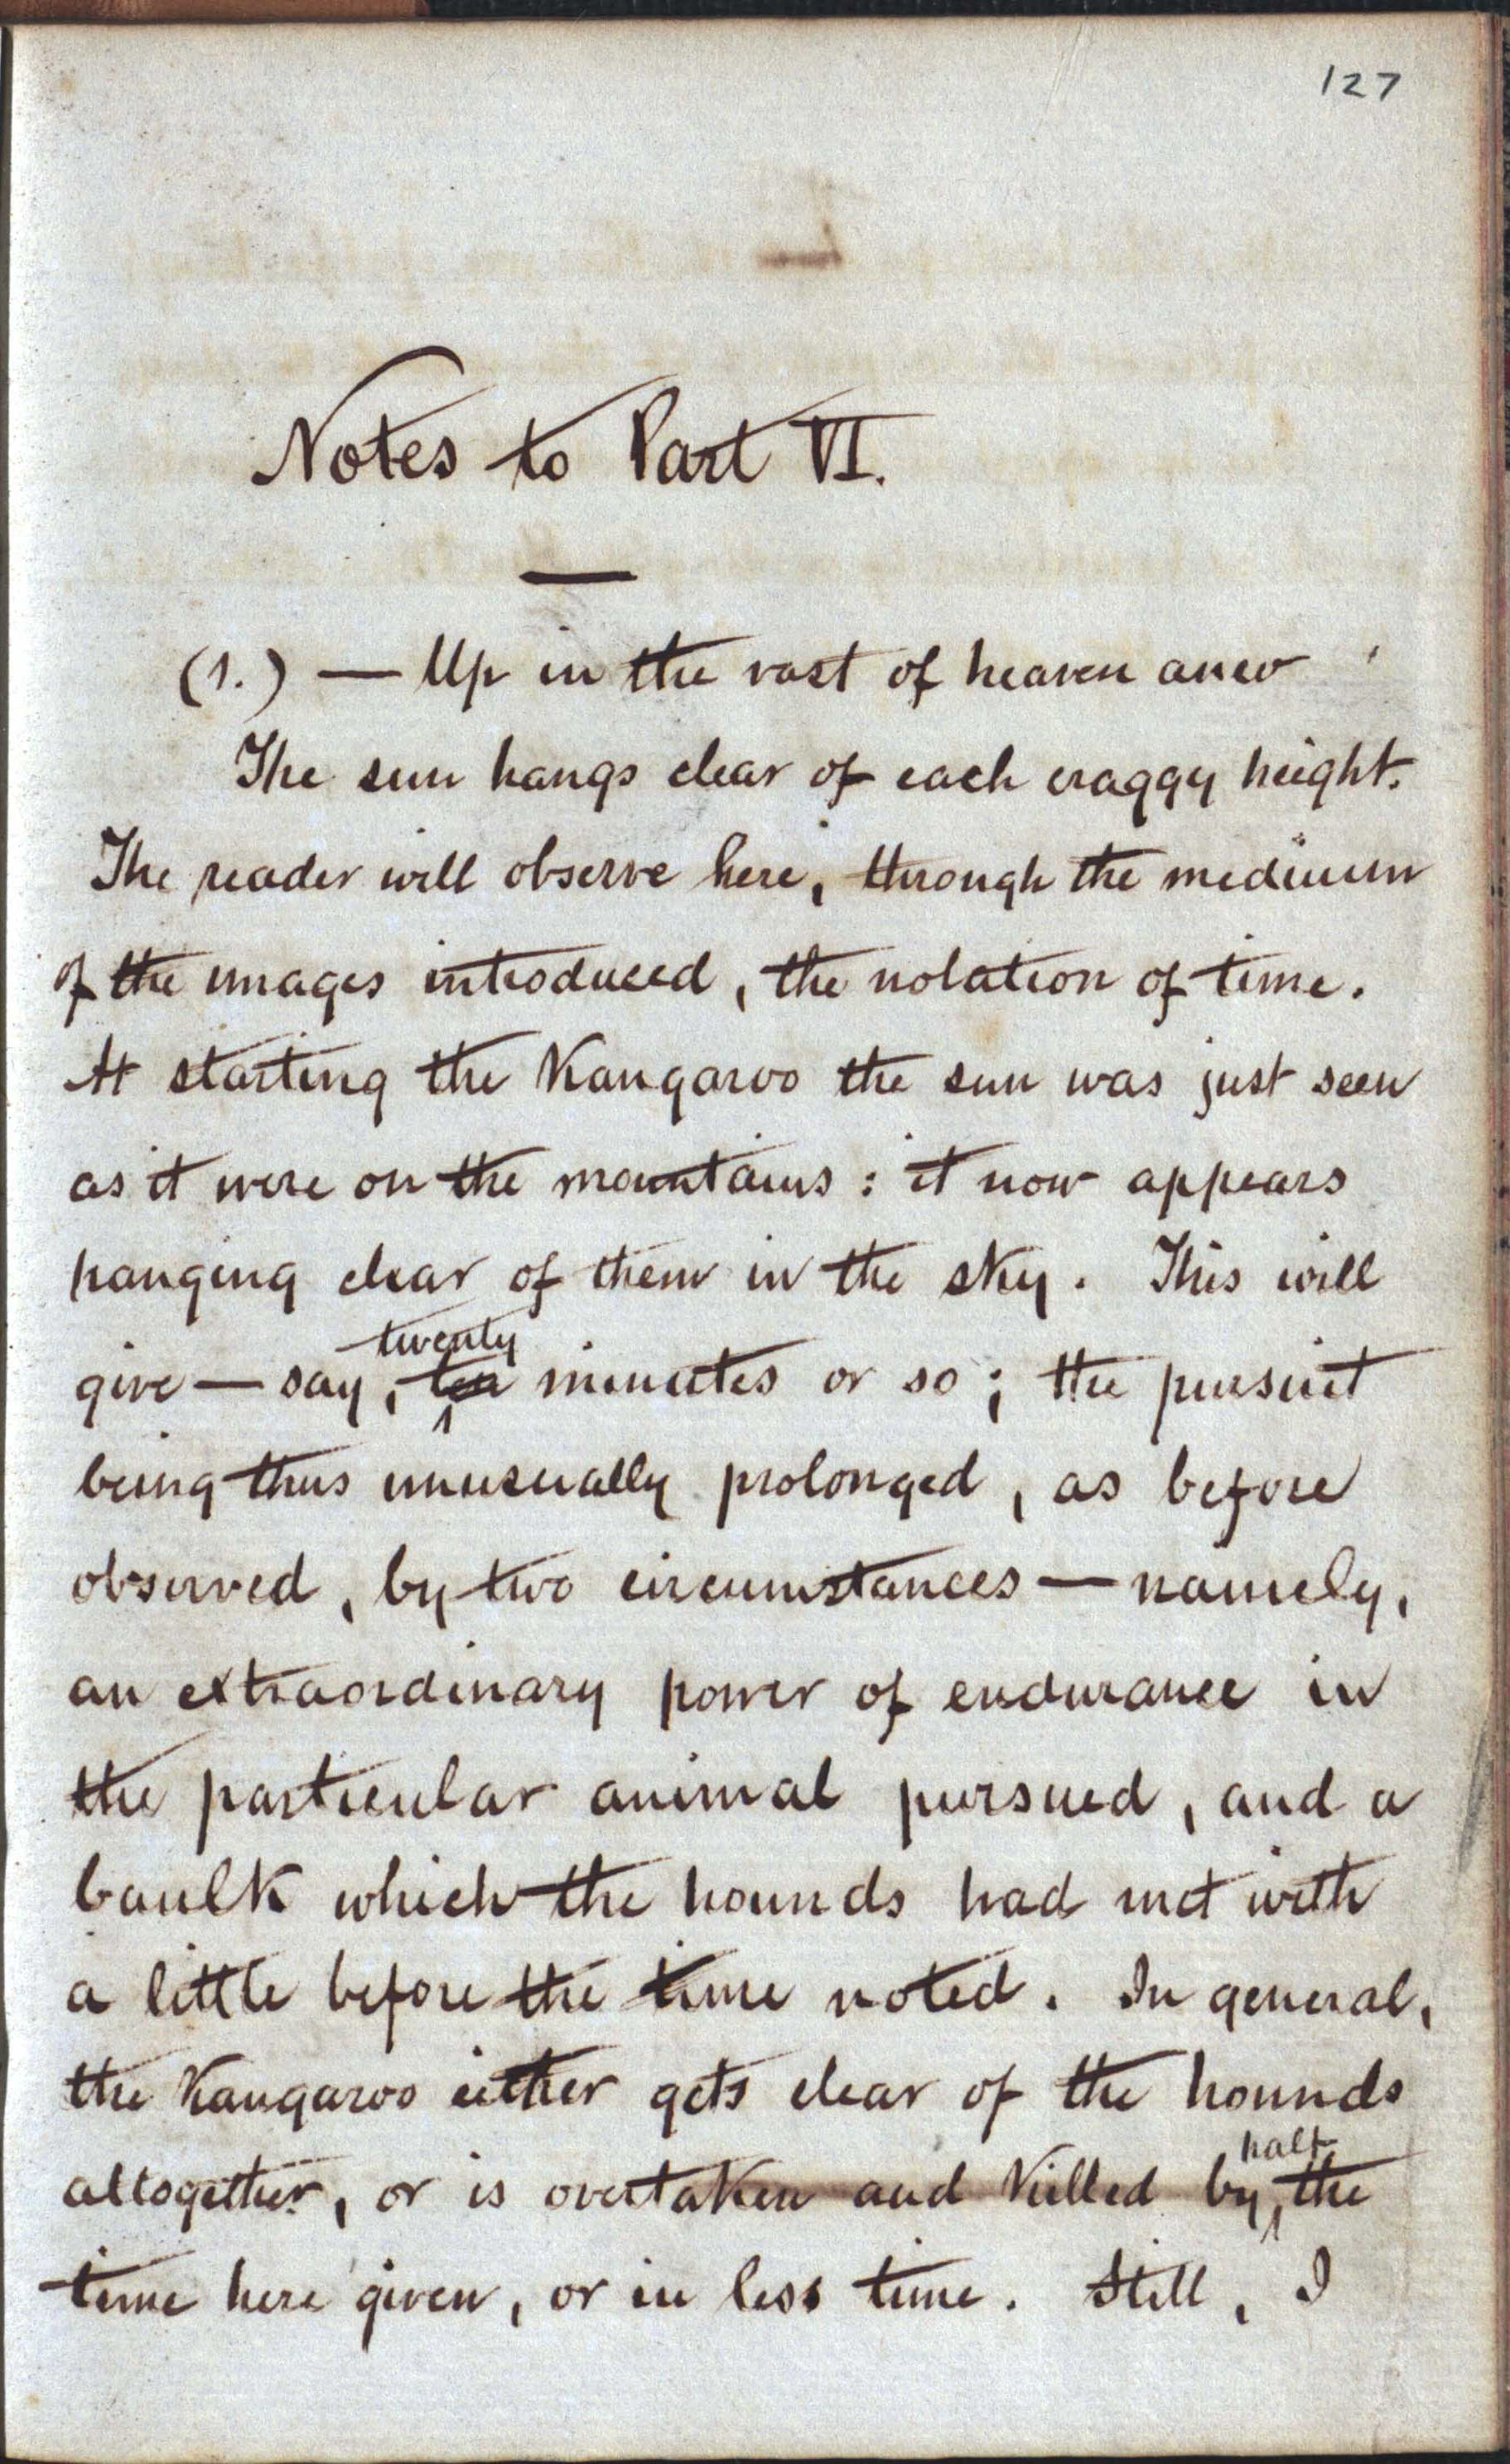 127
Notes to Part VI.
(1.) — Up in the vast of heaven anew
The sun hangs clear of each craggy height.
The reader will observe here, through the medium
of the images introduced, the notation of time.
At starting the Kangaroo the sun was just seen
as it were on the mountains: it now appears
hanging clear of them in the sky. This will
twenty
give — say, ten minutes or so; the pursuit
being thus unusually prolonged, as before
observed, by two circumstances — namely,
an extraordinary power of endurance in
the particular animal pursued, and a
baulk which the hounds had met with
a little before the time noted. In general,
the Kangaroo either gets clear of the hounds
half
altogether, or is overtaken and killed by the
time here given, or in less time. Still, I